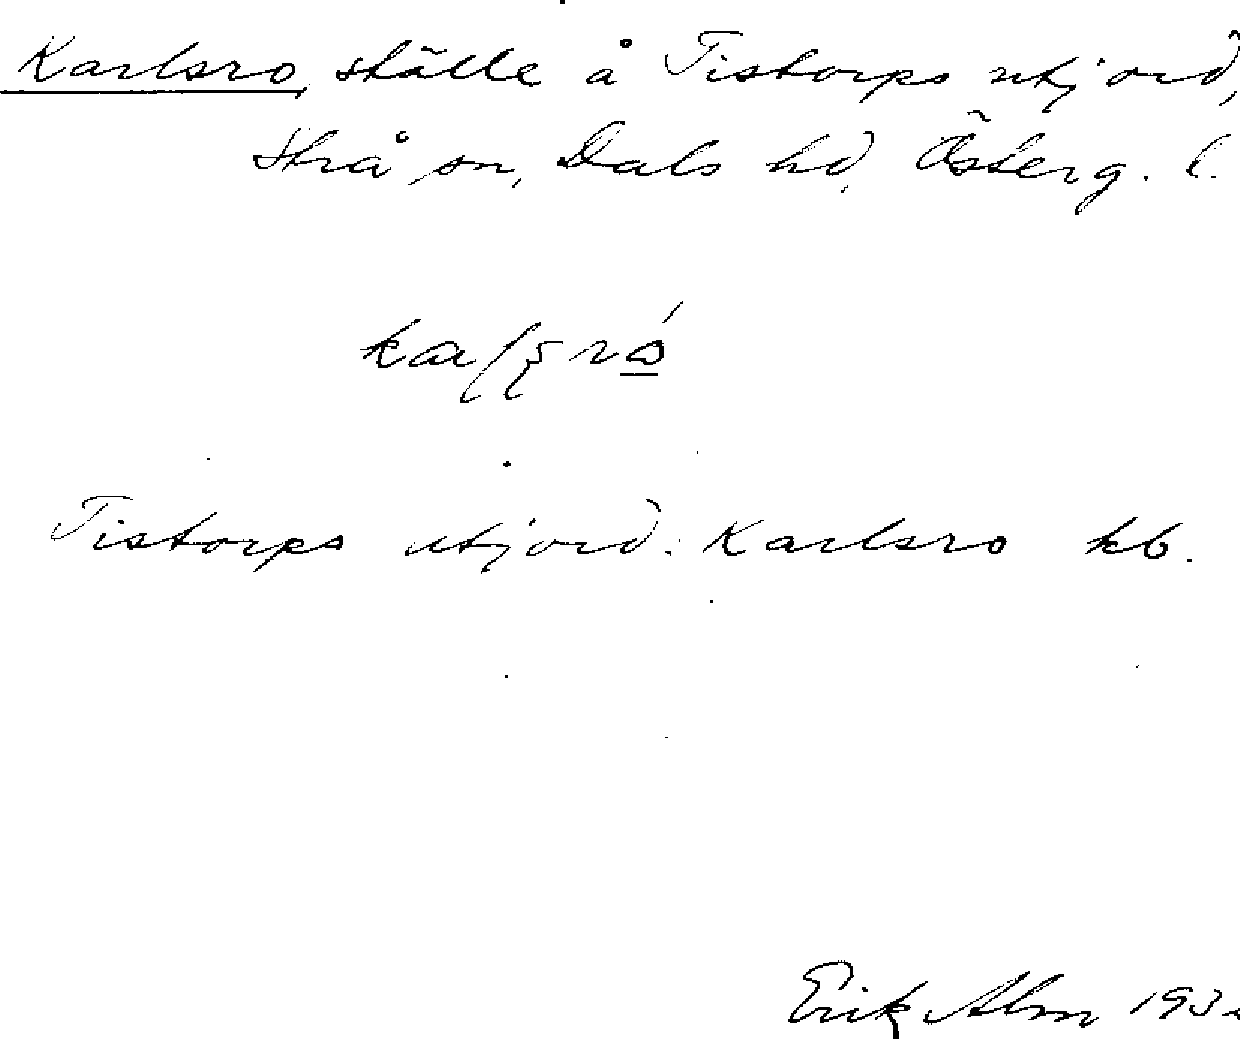 Karlsro, ställe å Tistorps utjord,
Strå sn, Dals hd, Österg. l.
Tistorps utjord: Karlsro kb.
Erik Alm